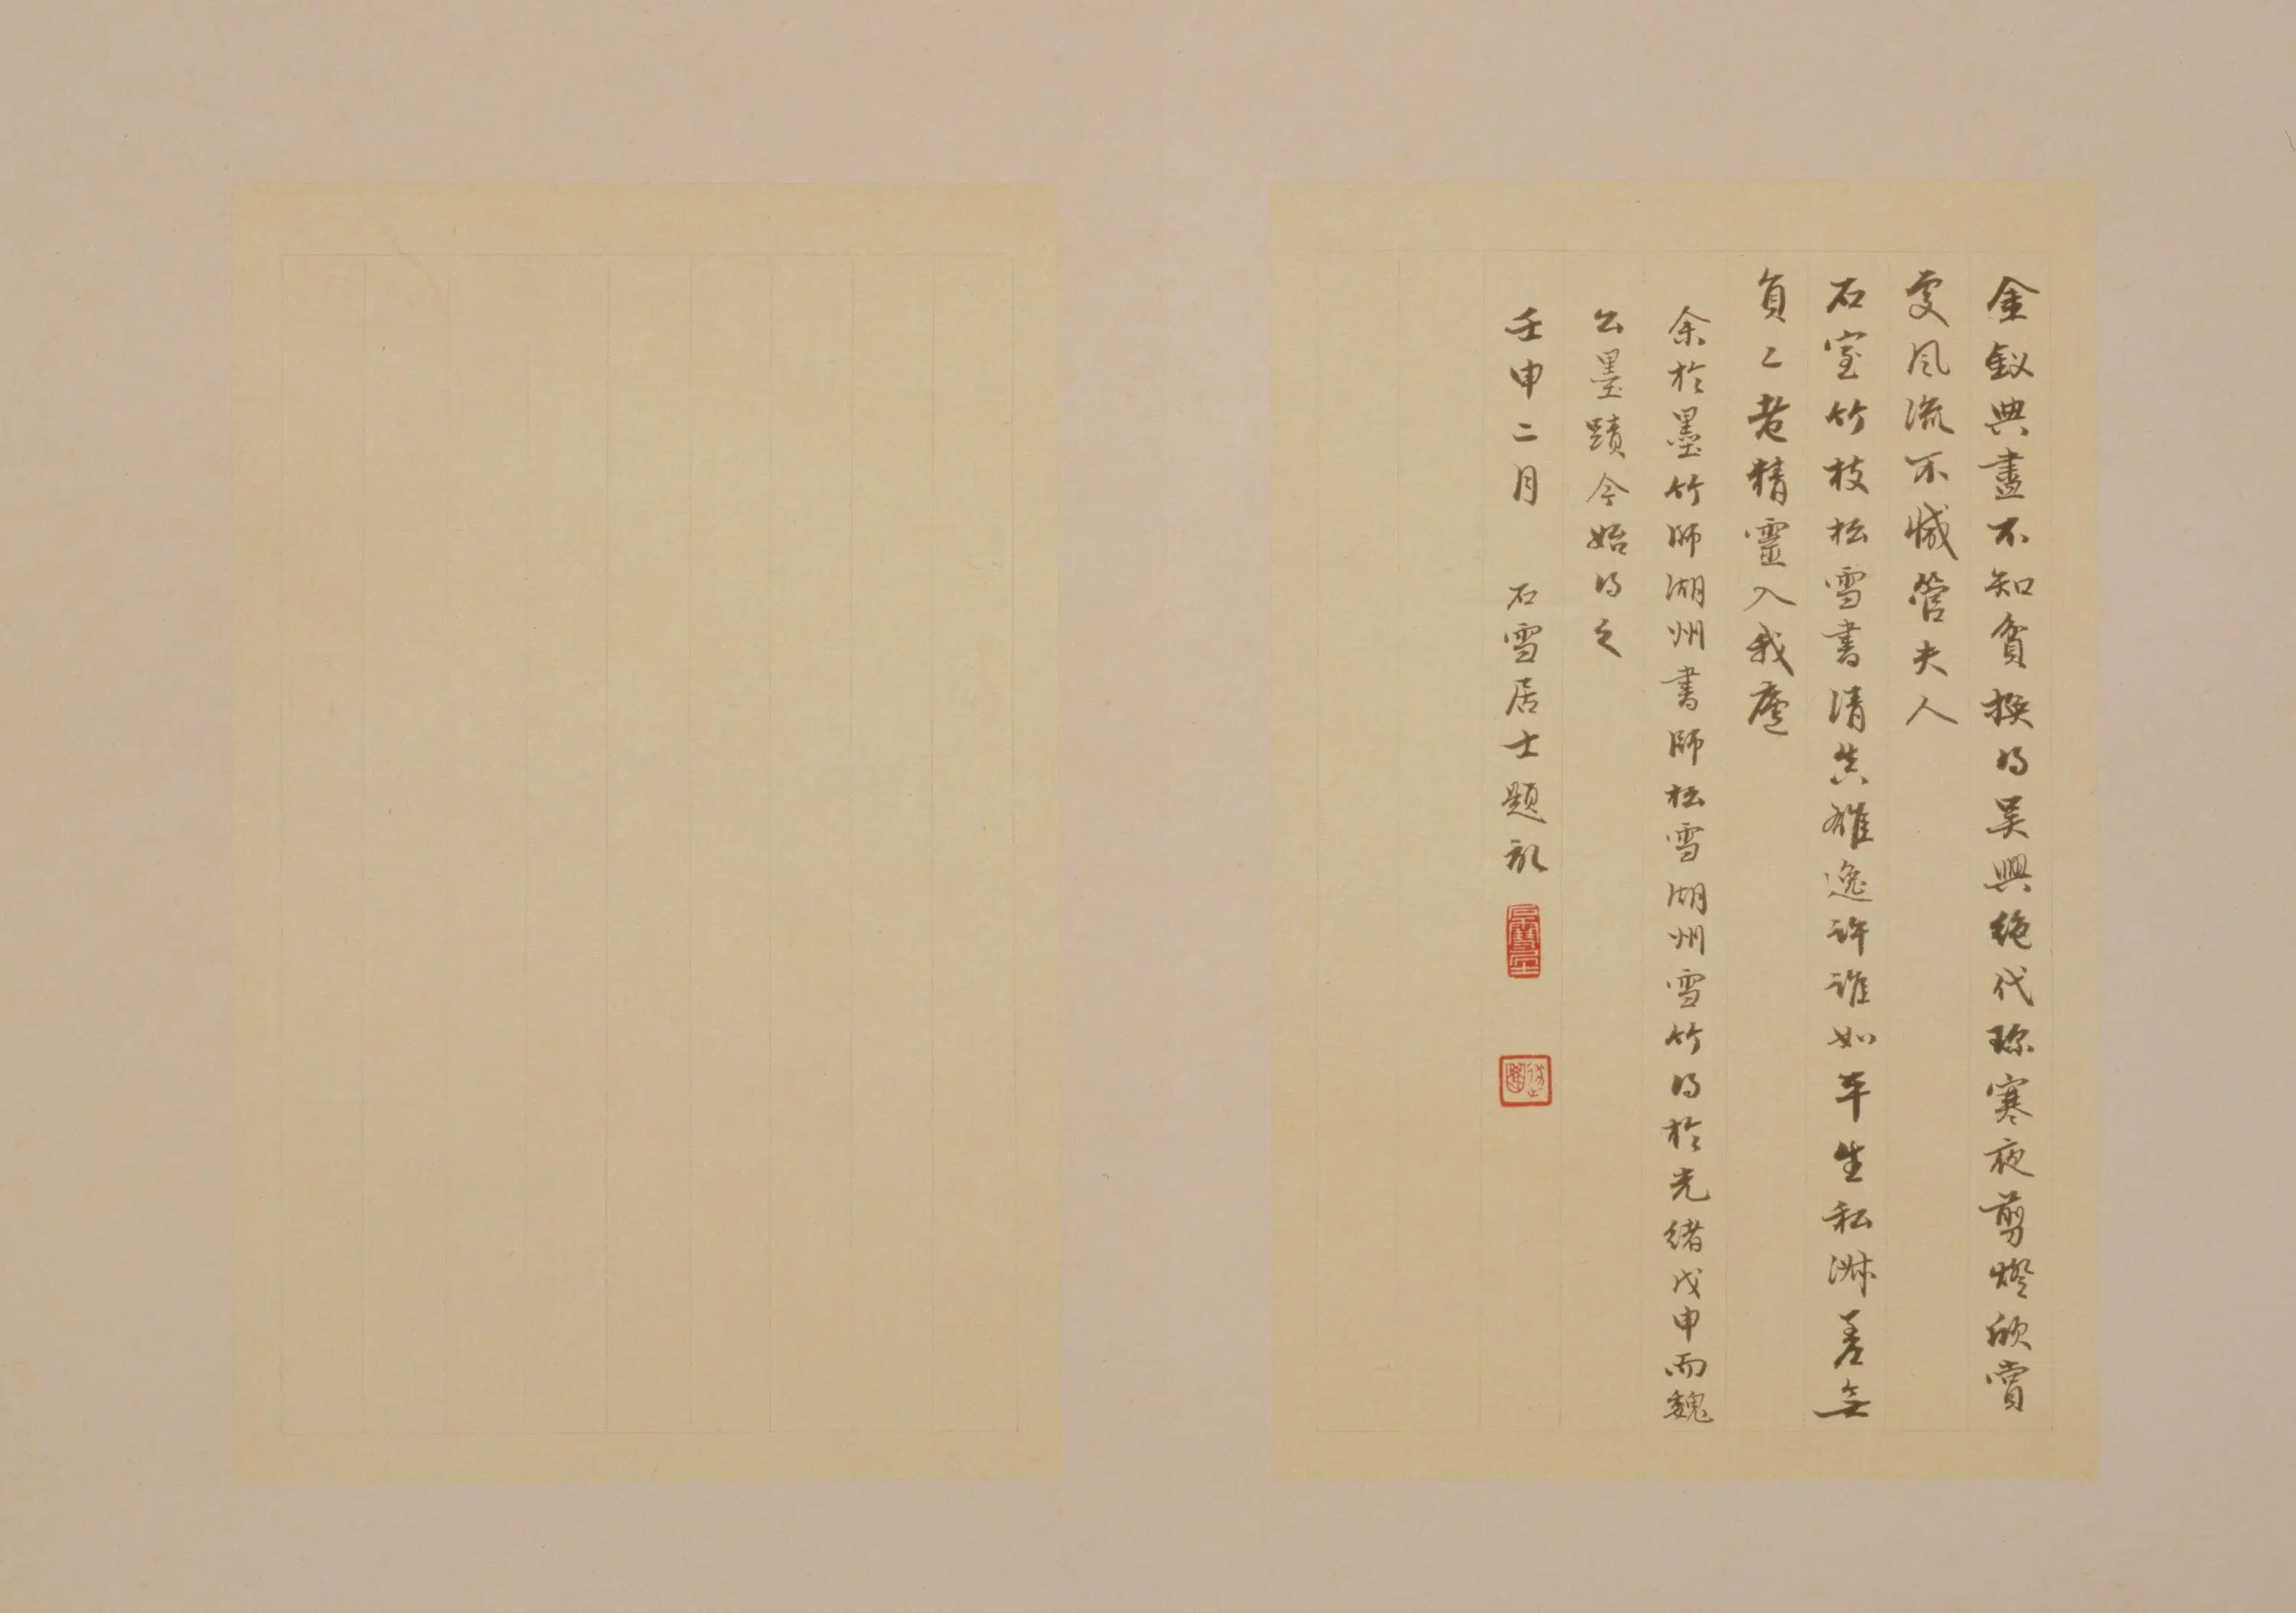 金釵典盡不知貧換得吳興絶代珍寒夜剪燈欣賞
處風流不愧管夫人
石室竹枝松雪書清真雄逸許誰如平生私淑差無
負二老精靈入我廬
余於墨竹師湖州書師松雪湖州雪竹得於光緒戊申而魏
公墨蹟今始得之
壬申二月 石雪居士題記
石雪居士